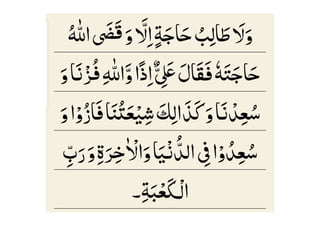 وَلَا طَالِبُ حَاجَةٍ اِلَّا وَ قَضَی اللهُ
حَاجَتَهٗ فَقَالَ عَلِیٌّ اِذًا وَّاللهِ فُزْنَا وَ
سُعِدْنَا وَ كَذَالِكَ شِیْعَتُنَا فَازُوْا وَ
سُعِدُوْا فِی الدُّنْیَا وَالْاٰخِرَةِ وَ رَبِّ
الْكَعْبَةِ۔